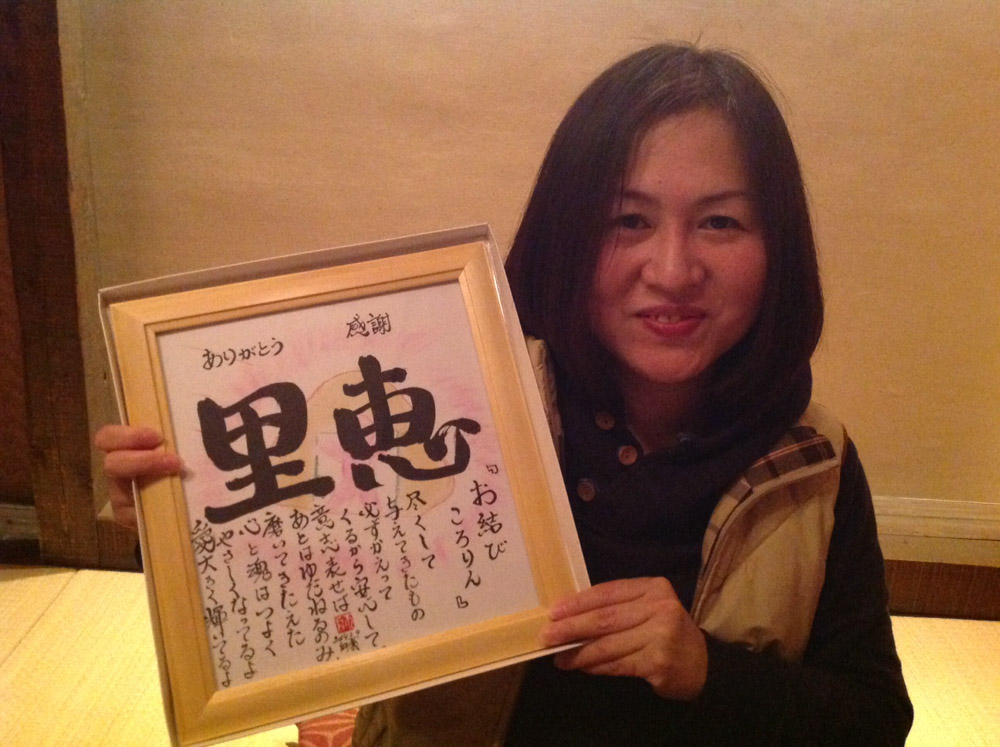 感謝
ありがとう
恵里
『お結び
ころりん』
尽くして
与えてきたもの
必ずかえって
くるから安心して、
意志表せば
あとはゆだねるのみ、
磨いてきたえた
心と魂はつよく
やさしくなってるよ
愛大きく輝いてるよ